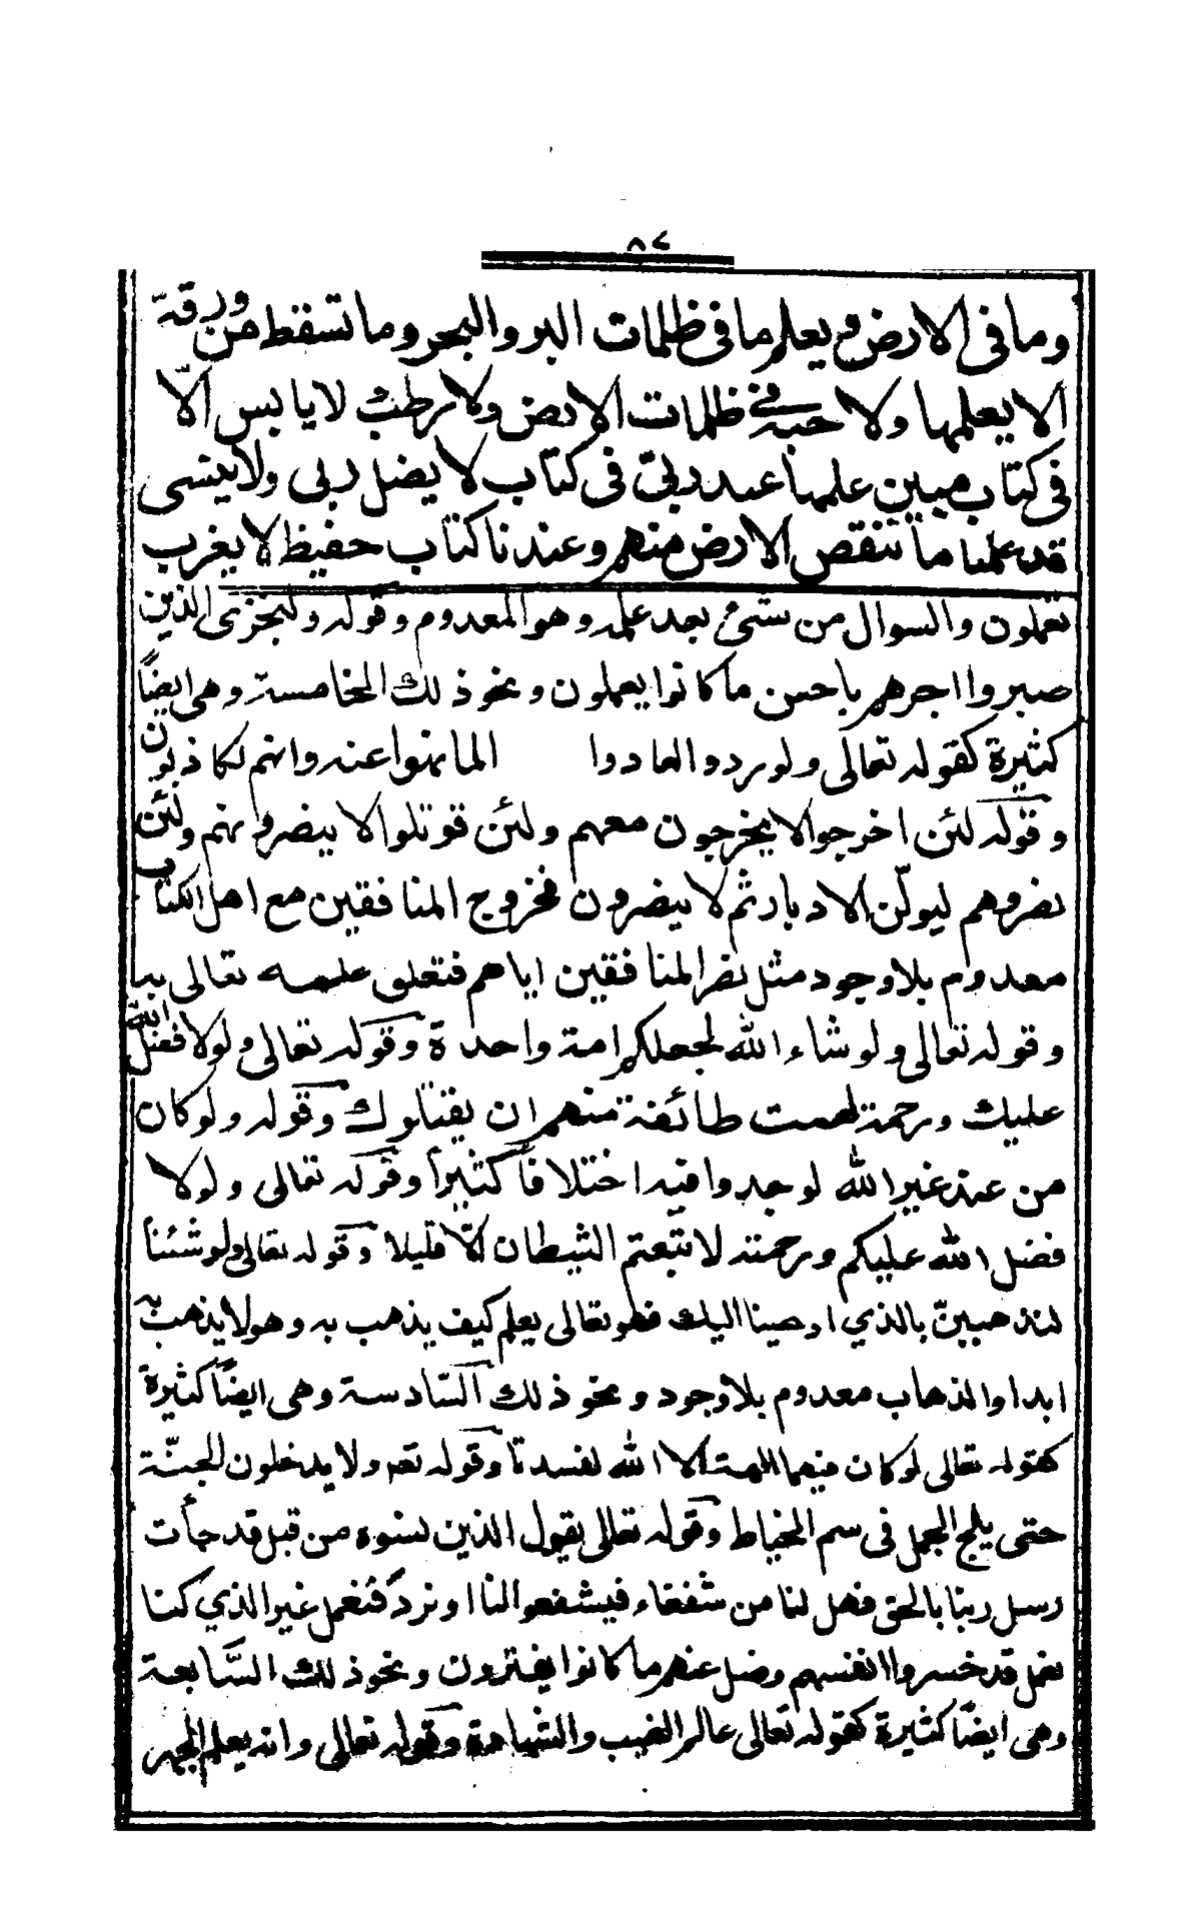 ٨٤
وما فى الارض ويعلم ما فى ظلمات البر والبحر وما تسقط من ورقة
الا يعلمها ولا حبة في ظلمات الارض ولا رطب لا يابس الّا
فى كتاب مبين علمها عند ربى فى كتاب لا يضل ربى ولا ينسى
قد علمنا ما تنقص الارض منهم وعندنا كتاب حفيظ لا يغرب
تعملون والسوال من شئ بعد علمه وهو المعدوم وقوله ولنجزى الذين
صبروا اجرهم باحسن ما كانوا يعملون ونحو ذلك الخامسة وهى ايضًا
كثيرة كقوله تعالى ولو ردوا لعادوا لما نهوا عنه وانهم لكاذبون
وقوله لئن اخرجوا لا يخرجون معهم ولئن قوتلوا لا ينصرونهم ولئن
نصروهم ليولّن الادبار ثم لا ينصرون فخروج المنافقين مع اهل الكتاب
معدوم بلا وجود مثل نصر المنافقين اياهم فتعلق علمه تعالى به
وقوله تعالى ولو شاء الله لجعلكم امة واحدة وقوله تعالى ولولا فضل الله
عليك ورحمته لهمت طائفة منهم ان يقتلوك وقوله ولو كان
من عند غير الله لوجدوا فيه اختلافاً كثيراً وقوله تعالى ولولا
فضل الله عليكم ورحمته لا تبعتم الشيطان الّا قليلا وقوله تعالى ولو شئنا
لنذهبينّ بالذي اوحينا اليك فهو تعالى يعلم كيف يذهب به وهو لا يذهب به
ابدا والذهاب معدوم بلا وجود ونحو ذلك السّادسة وهى ايضًا كثيرة
كقوله تعالى لو كان فيهما الهة الا الله لفسدتا وقوله تعه ولا يدخلون الجنّة
حتى يلج الجمل فى سم الخياط وقوله تعالى يقول الذين نسوه من قبل قد جأت
رسل ربنا بالحق فهل لنا من شفعاء فيشفعوا لنا او نردّ فنعمل غير الذي كنا
نعمل قد خسروا انفسهم وضل عنهم ما كانوا يفترون ونحو ذلك السّابعة
وهى ايضًا كثيرة كقوله تعالى عالم الغيب والشهادة وقوله تعالى وانه يعلم الجهر